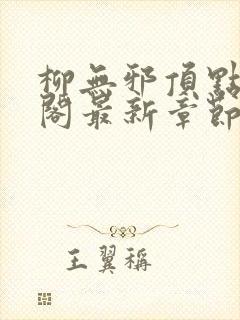 柳無邪頂點
閣最新章節
王翼稱